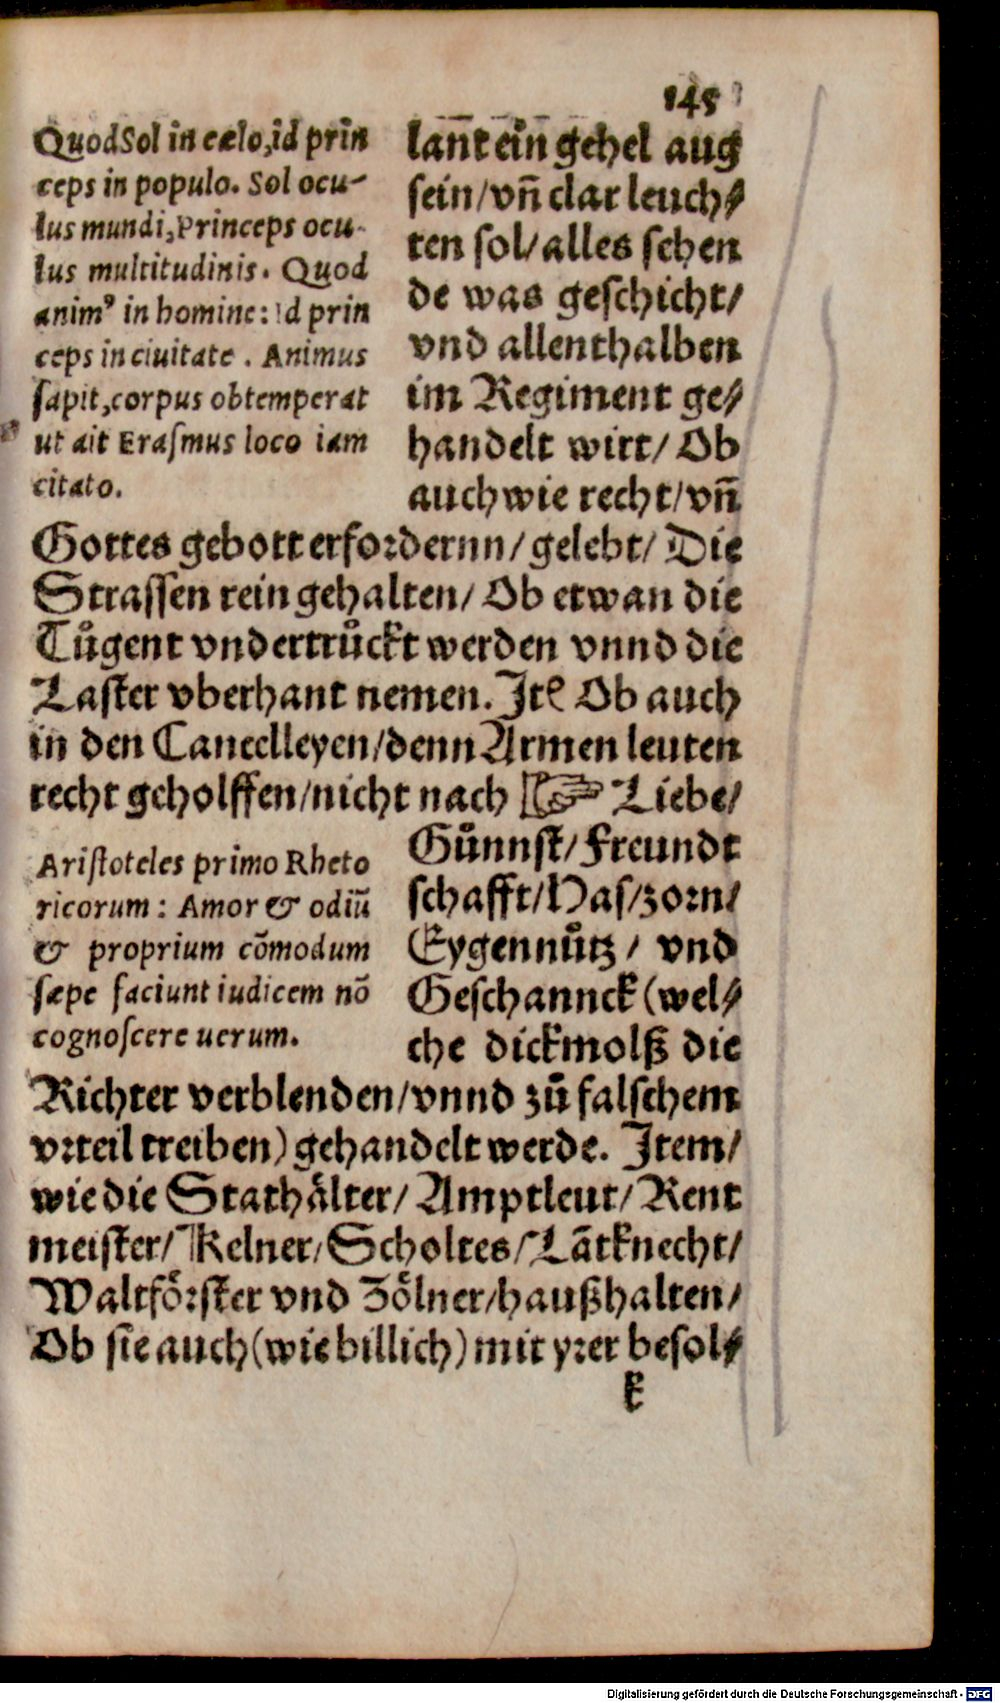 145
QuodSol in cælo, id prin
ceps in populo. Sol ocu-
lus mundi, Princeps ocu-
lus multitudinis. Quod
animꝰ in homine: id prin
ceps in ciuitate. Animus
ſapit, corpus obtemperat
ut ait Eraſmus loco iam
citato.
lan̄t ein gehel aug
sein/vñ clar leuch⸗
ten sol/alles sehen
de was geschicht/
vnd allenthalben
im Regiment ge⸗
handelt wirt/ Ob
auch wie recht/vñ
Gottes gebott erfordernn/ gelebt/ Die
Strassen rein gehalten/ Ob etwan die
Tůgent vndertrůckt werden vnnd die
Laster vberhant nemen. Itē Ob auch
in den Cancelleyen/denn Armen leuten
recht geholffen/nicht nach ☞ Liebe/
Aristoteles primo Rheto
ricorum: Amor & odiū
& proprium cōmodum
ſæpe faciunt iudicem nō
cognoſcere uerum.
Gůnnst/Freundt
schafft/Has/zorn/
Eygennůtz/ vnd
Geschannck (wel⸗
che dickmolß die
Richter verblenden/vnnd zů falschem
vꝛteil treiben) gehandelt werde. Item/
wie die Stathålter/ Amptleut/ Rent
meister/ Kelner/Scholtes/Lātknecht/
Waltfoͤꝛster vnd Zoͤlner/haußhalten/
Ob sie auch (wie billich) mit yꝛer besol⸗
k
Digitalisierung gefördert durch die Deutsche Forschungsgemeinschaft - DFG